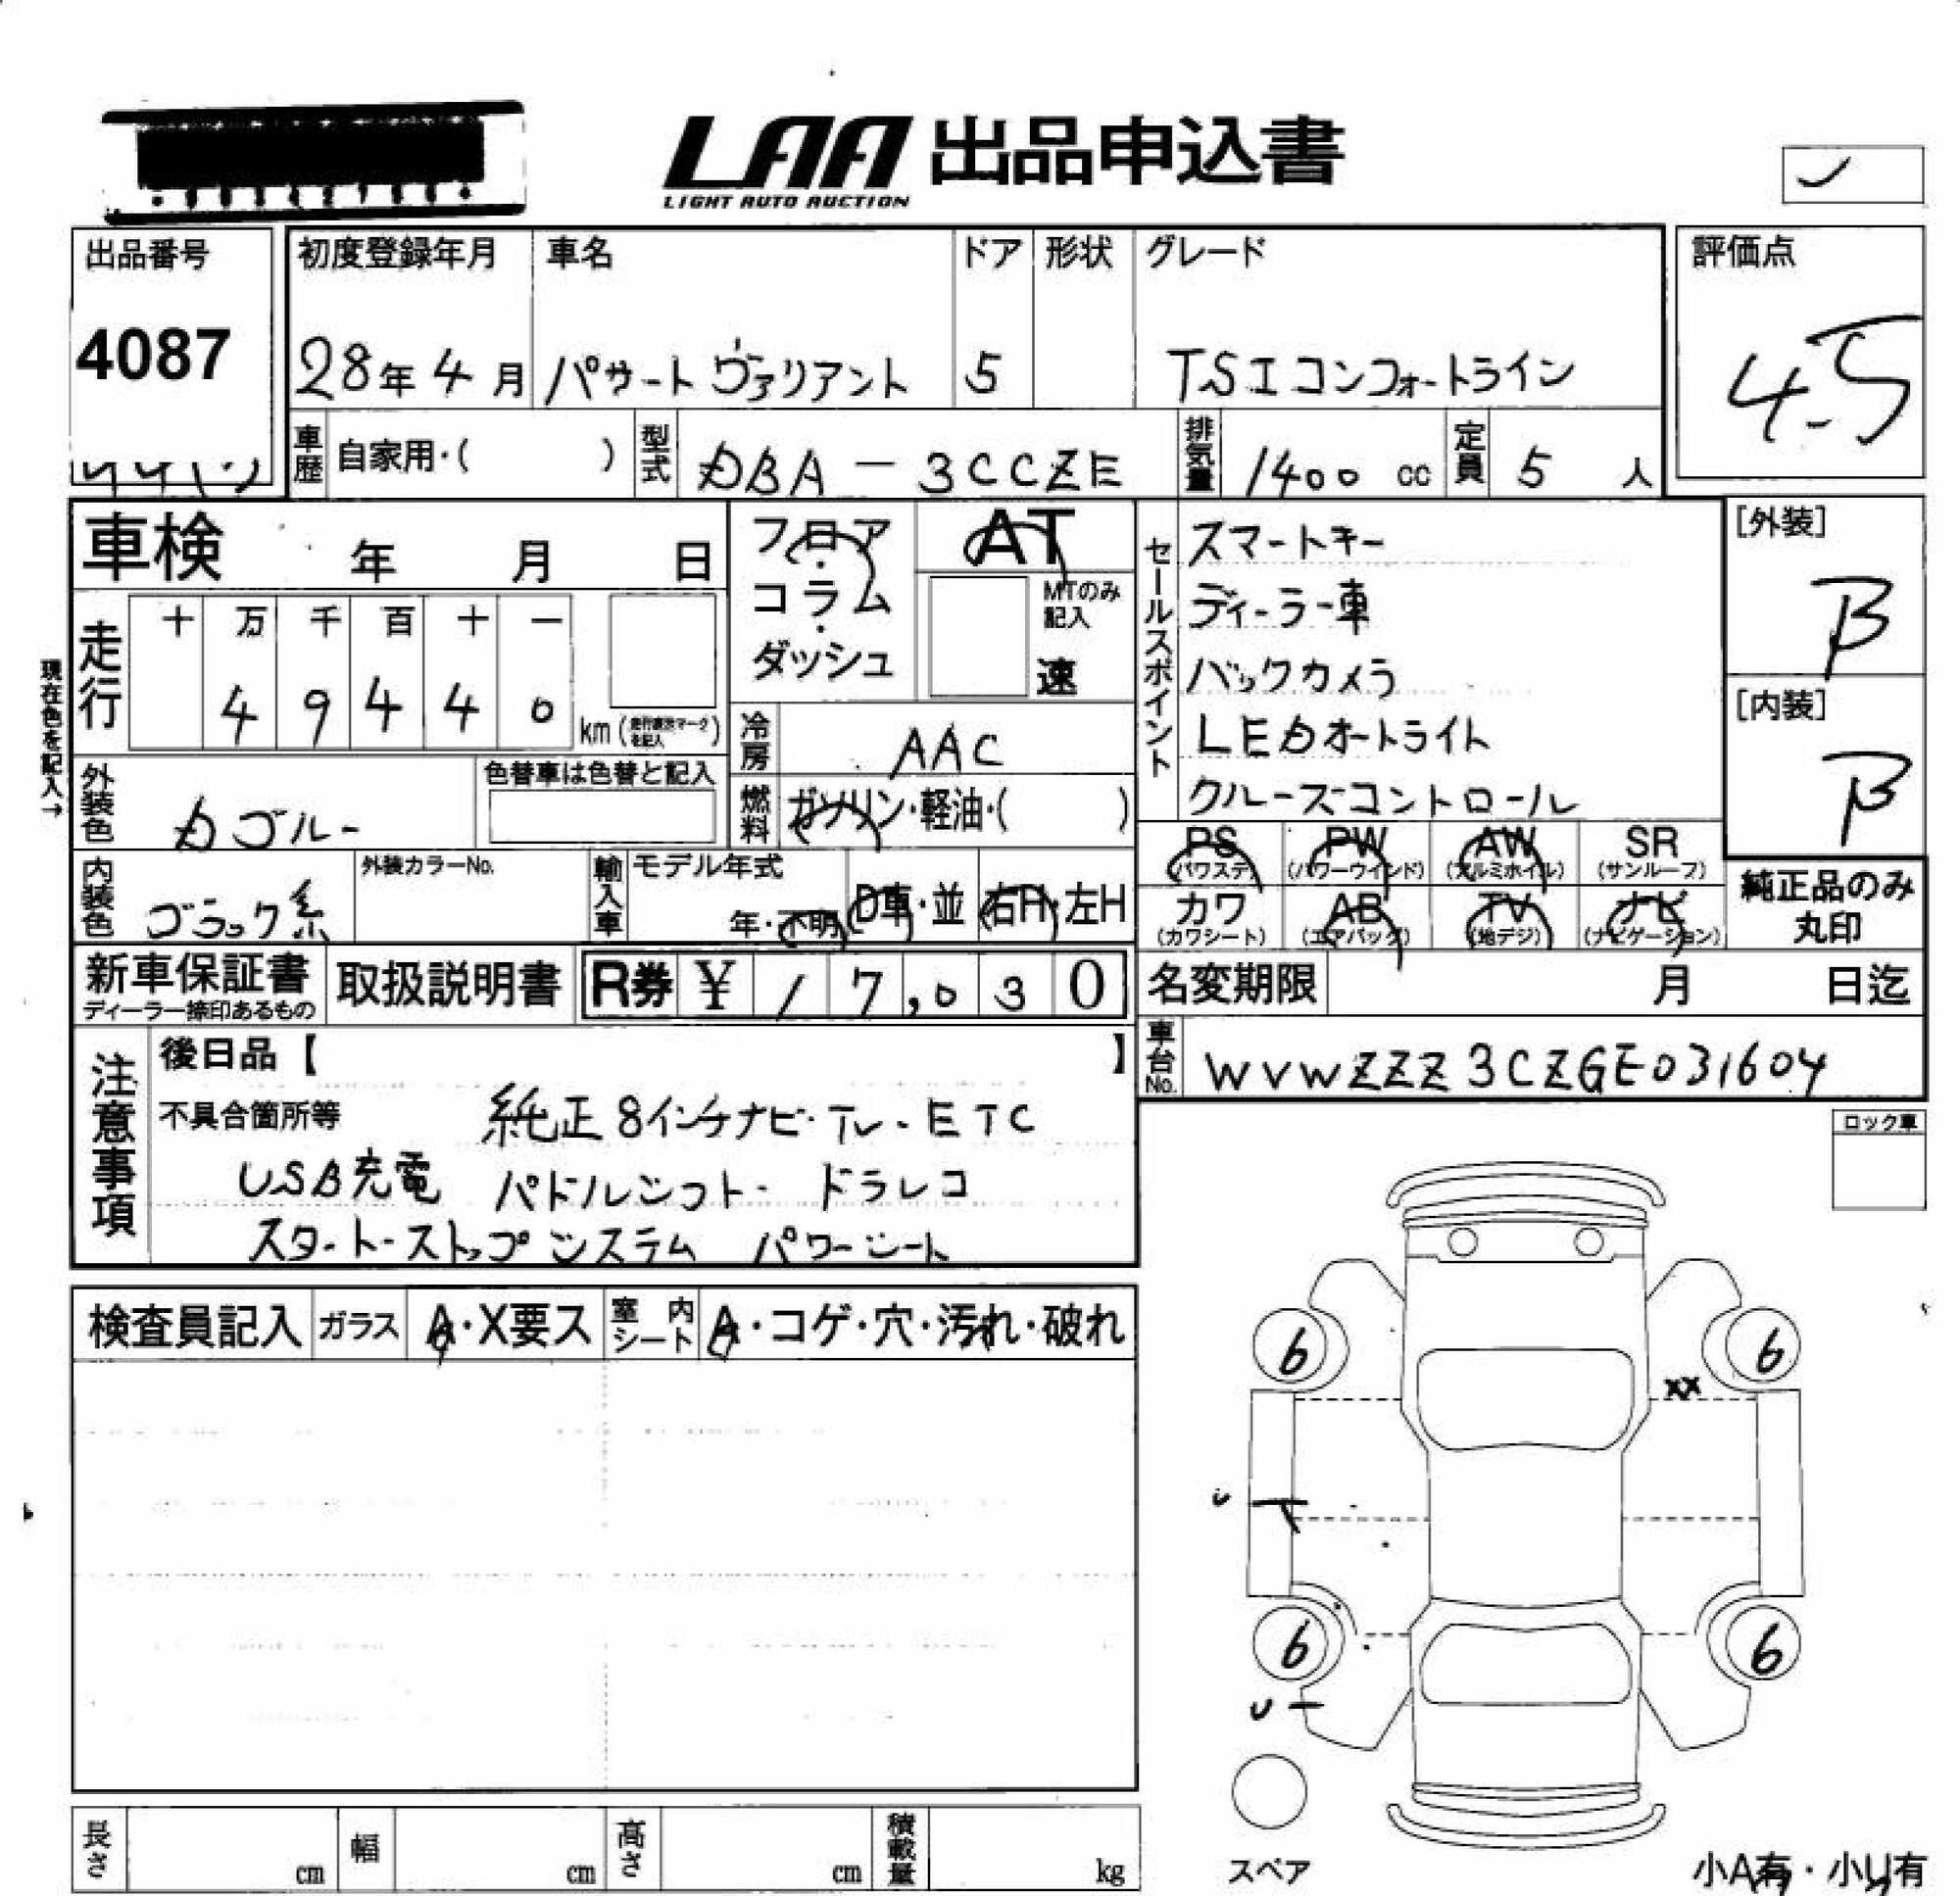 LAA 出品申込書
LIGHT AUTO AUCTION
出品番号
4087
初度登録年月
28年4月
車名
パサート ヴァリアント
ドア
5
形状
グレード
TSI コンフォートライン
評価点
4.5
車歴 自家用・( )
型式 DBA - 3CCZE
排気量 1400 cc
定員 5 人
車検 年 月 日
現在色を記入→
走行
十 万 千 百 十 一
4 9 4 4 0 km
フロア・
コラム・
ダッシュ
AT
MTのみ記入
速
セールスポイント
スマートキー
ディーラー車
バックカメラ
LEDオートライト
クルーズコントロール
[外装]
B
[内装]
B
冷房 AAC
燃料 ガソリン・軽油・( )
外装色 Dブルー
色替車は色替と記入
内装色 ブラック系
外装カラーNo.
輸入車 モデル年式
年・不明 D車・並 右H・左H
PS (パワステ) PW (パワーウィンド) AW (アルミホイル) SR (サンルーフ)
カワ (カワシート) AB (エアバッグ) TV (地デジ) ナビ (ナビゲーション)
純正品のみ丸印
新車保証書
ディーラー捺印あるもの
取扱説明書
R券 ¥ 17,030
名変期限 月 日迄
車台No. WVWZZZ3CZGE031604
注意事項
後日品【 】
不具合箇所等 純正8インチナビ・TV・ETC
USB充電 パドルシフト・ ドラレコ
スタートストップシステム パワーシート
ロック車
検査員記入 ガラス A・X要ス 室内シート A・コゲ・穴・汚れ・破れ
6 6
XX
U
6 6
U
スペア
長さ cm 幅 cm 高さ cm 積載量 kg
小A有・小U有